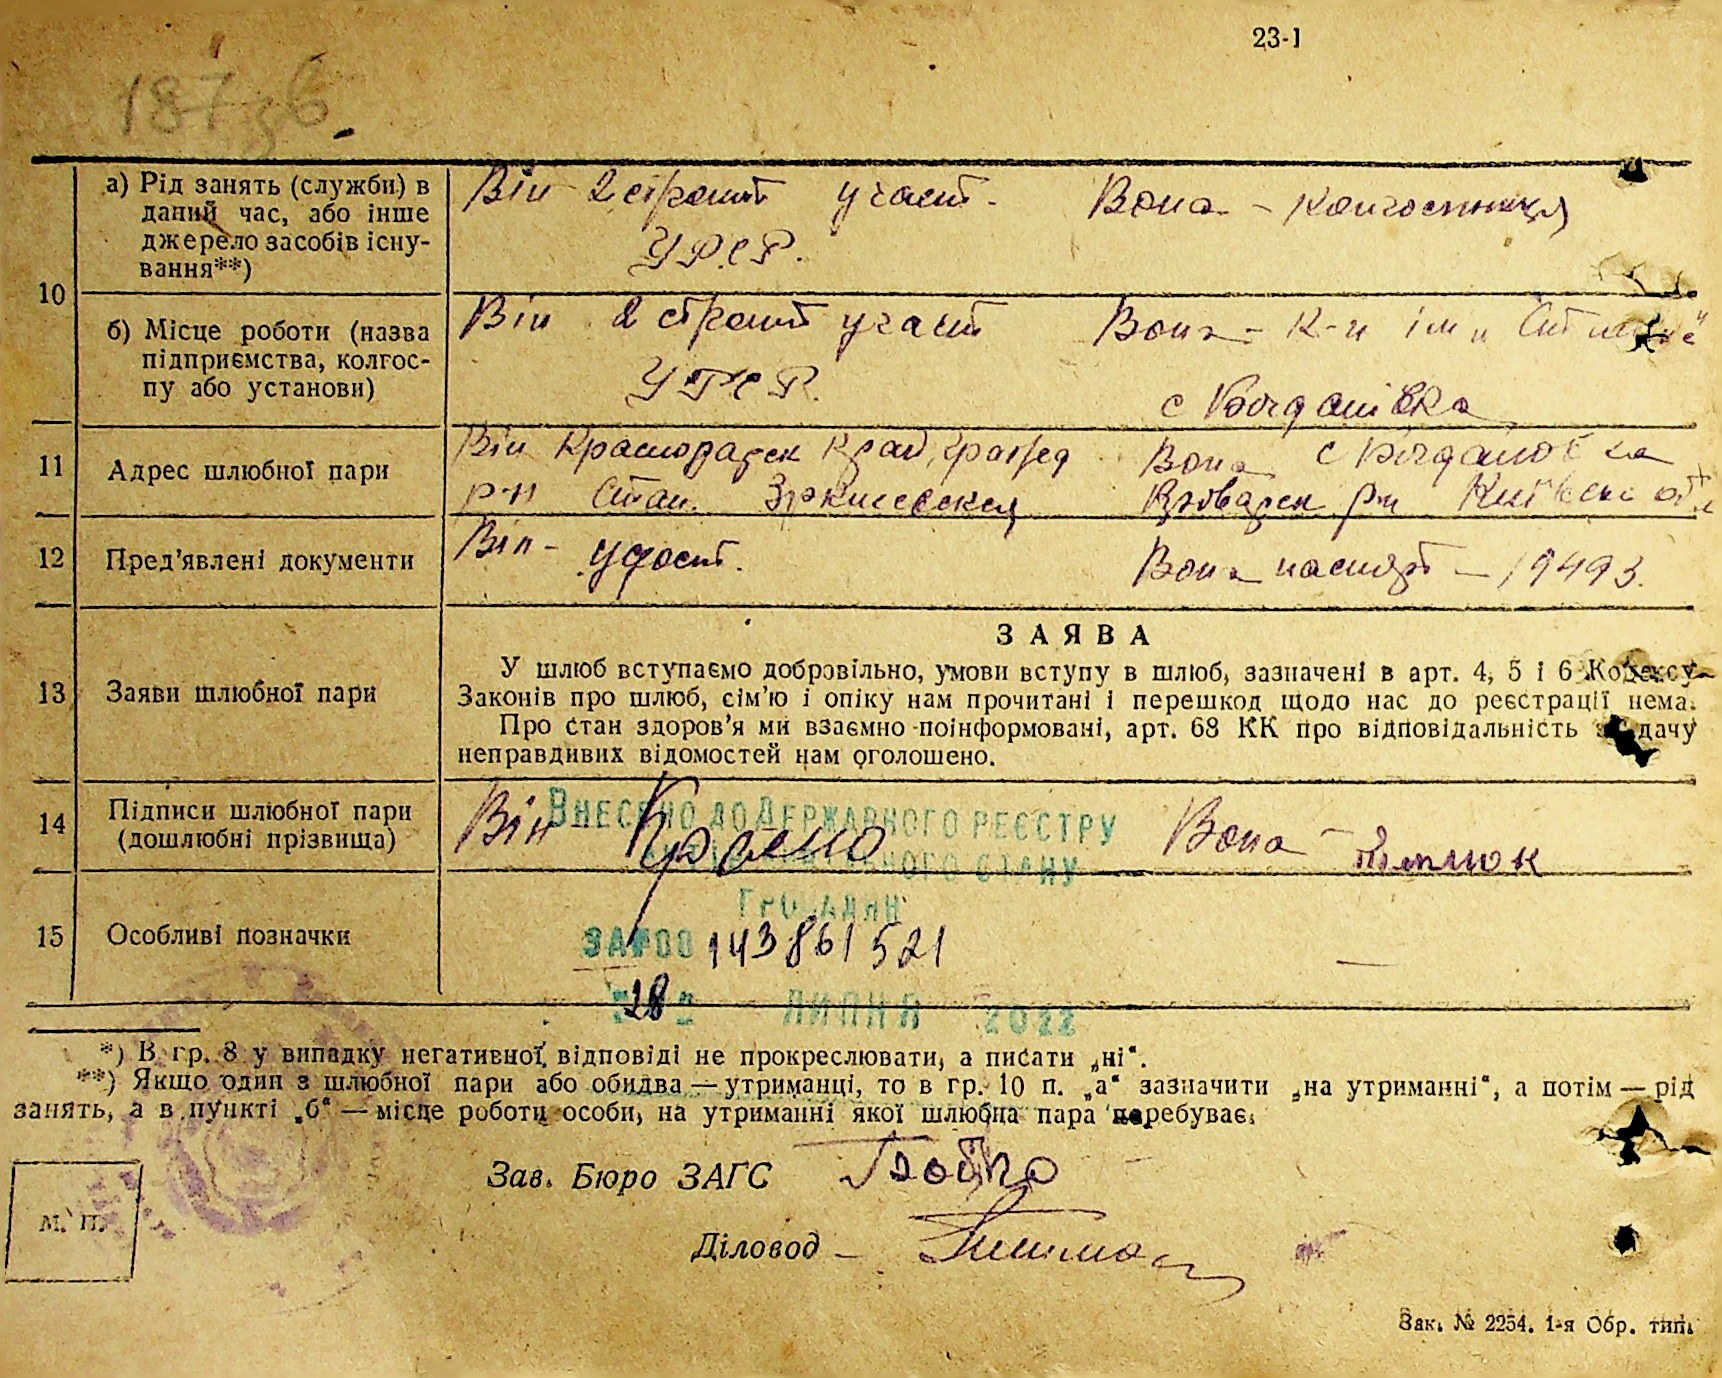 23-1
187зв
а) Рід занять (служби) в
даний час, або інше
джерело засобів існу-
вання**)
Він - 2 строит участ.
УРСР.
Вона - колгоспниця
10
б) Місце роботи (назва
підприємства, колгос-
пу або установи)
Він 2 строит участ
УРСР.
Вона - к-п ім
с Богданівка
11
Адрес шлюбної пари
Він
р-н Стан.
Вона с Богдановка
рн Київськ обл
12
Пред'явлені документи
Він - удост.
Вона паспорт - 19493.
13
Заяви шлюбної пари
ЗАЯВА
У шлюб вступаємо добровільно, умови вступу в шлюб, зазначені в арт. 4, 5 і 6 Кодексу
Законів про шлюб, сім'ю і опіку нам прочитані і перешкод щодо нас до реєстрації нема.
Про стан здоров'я ми взаємно поінформовані, арт. 68 КК про відповідальність за дачу
неправдивих відомостей нам оголошено.
14
Підписи шлюбної пари
(дошлюбні прізвища)
Він
Вона -
Внесено до Державного реєстру
актів цивільного стану
громадян
15
Особливі позначки
за №00 143861521
28 липня 2022
*) В гр. 8 у випадку негативної відповіді не прокреслювати, а писати „ні“.
**) Якщо один з шлюбної пари або обидва — утриманці, то в гр. 10 п. „а“ зазначити „на утриманні“, а потім — рід
занять, а в пункті „б“ — місце роботи особи, на утриманні якої шлюбна пара перебуває.
Зав. Бюро ЗАГС
Діловод -
М. П.
Зак. № 2254. 1-я Обр. тип.